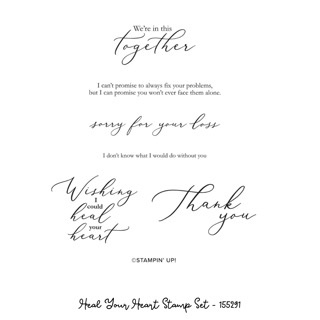 We're in this
together
I can't promise to always fix your problems,
but I can promise you won't ever face them alone.
sorry for your loss
I don't know what I would do without you
Wishing
I
could
heal
your
heart
Thank
you
©STAMPIN' UP!
Heal Your Heart Stamp Set - 155291